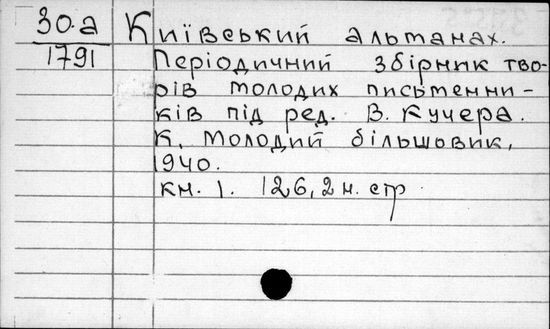 30.а
1791
Київський альманах.
Періодичний збірник тво-
рів молодих письменни-
ків під ред. В. Кучера.
К. Молодий більшовик,
1940.
кн. 1. 126, 2 н. стр.